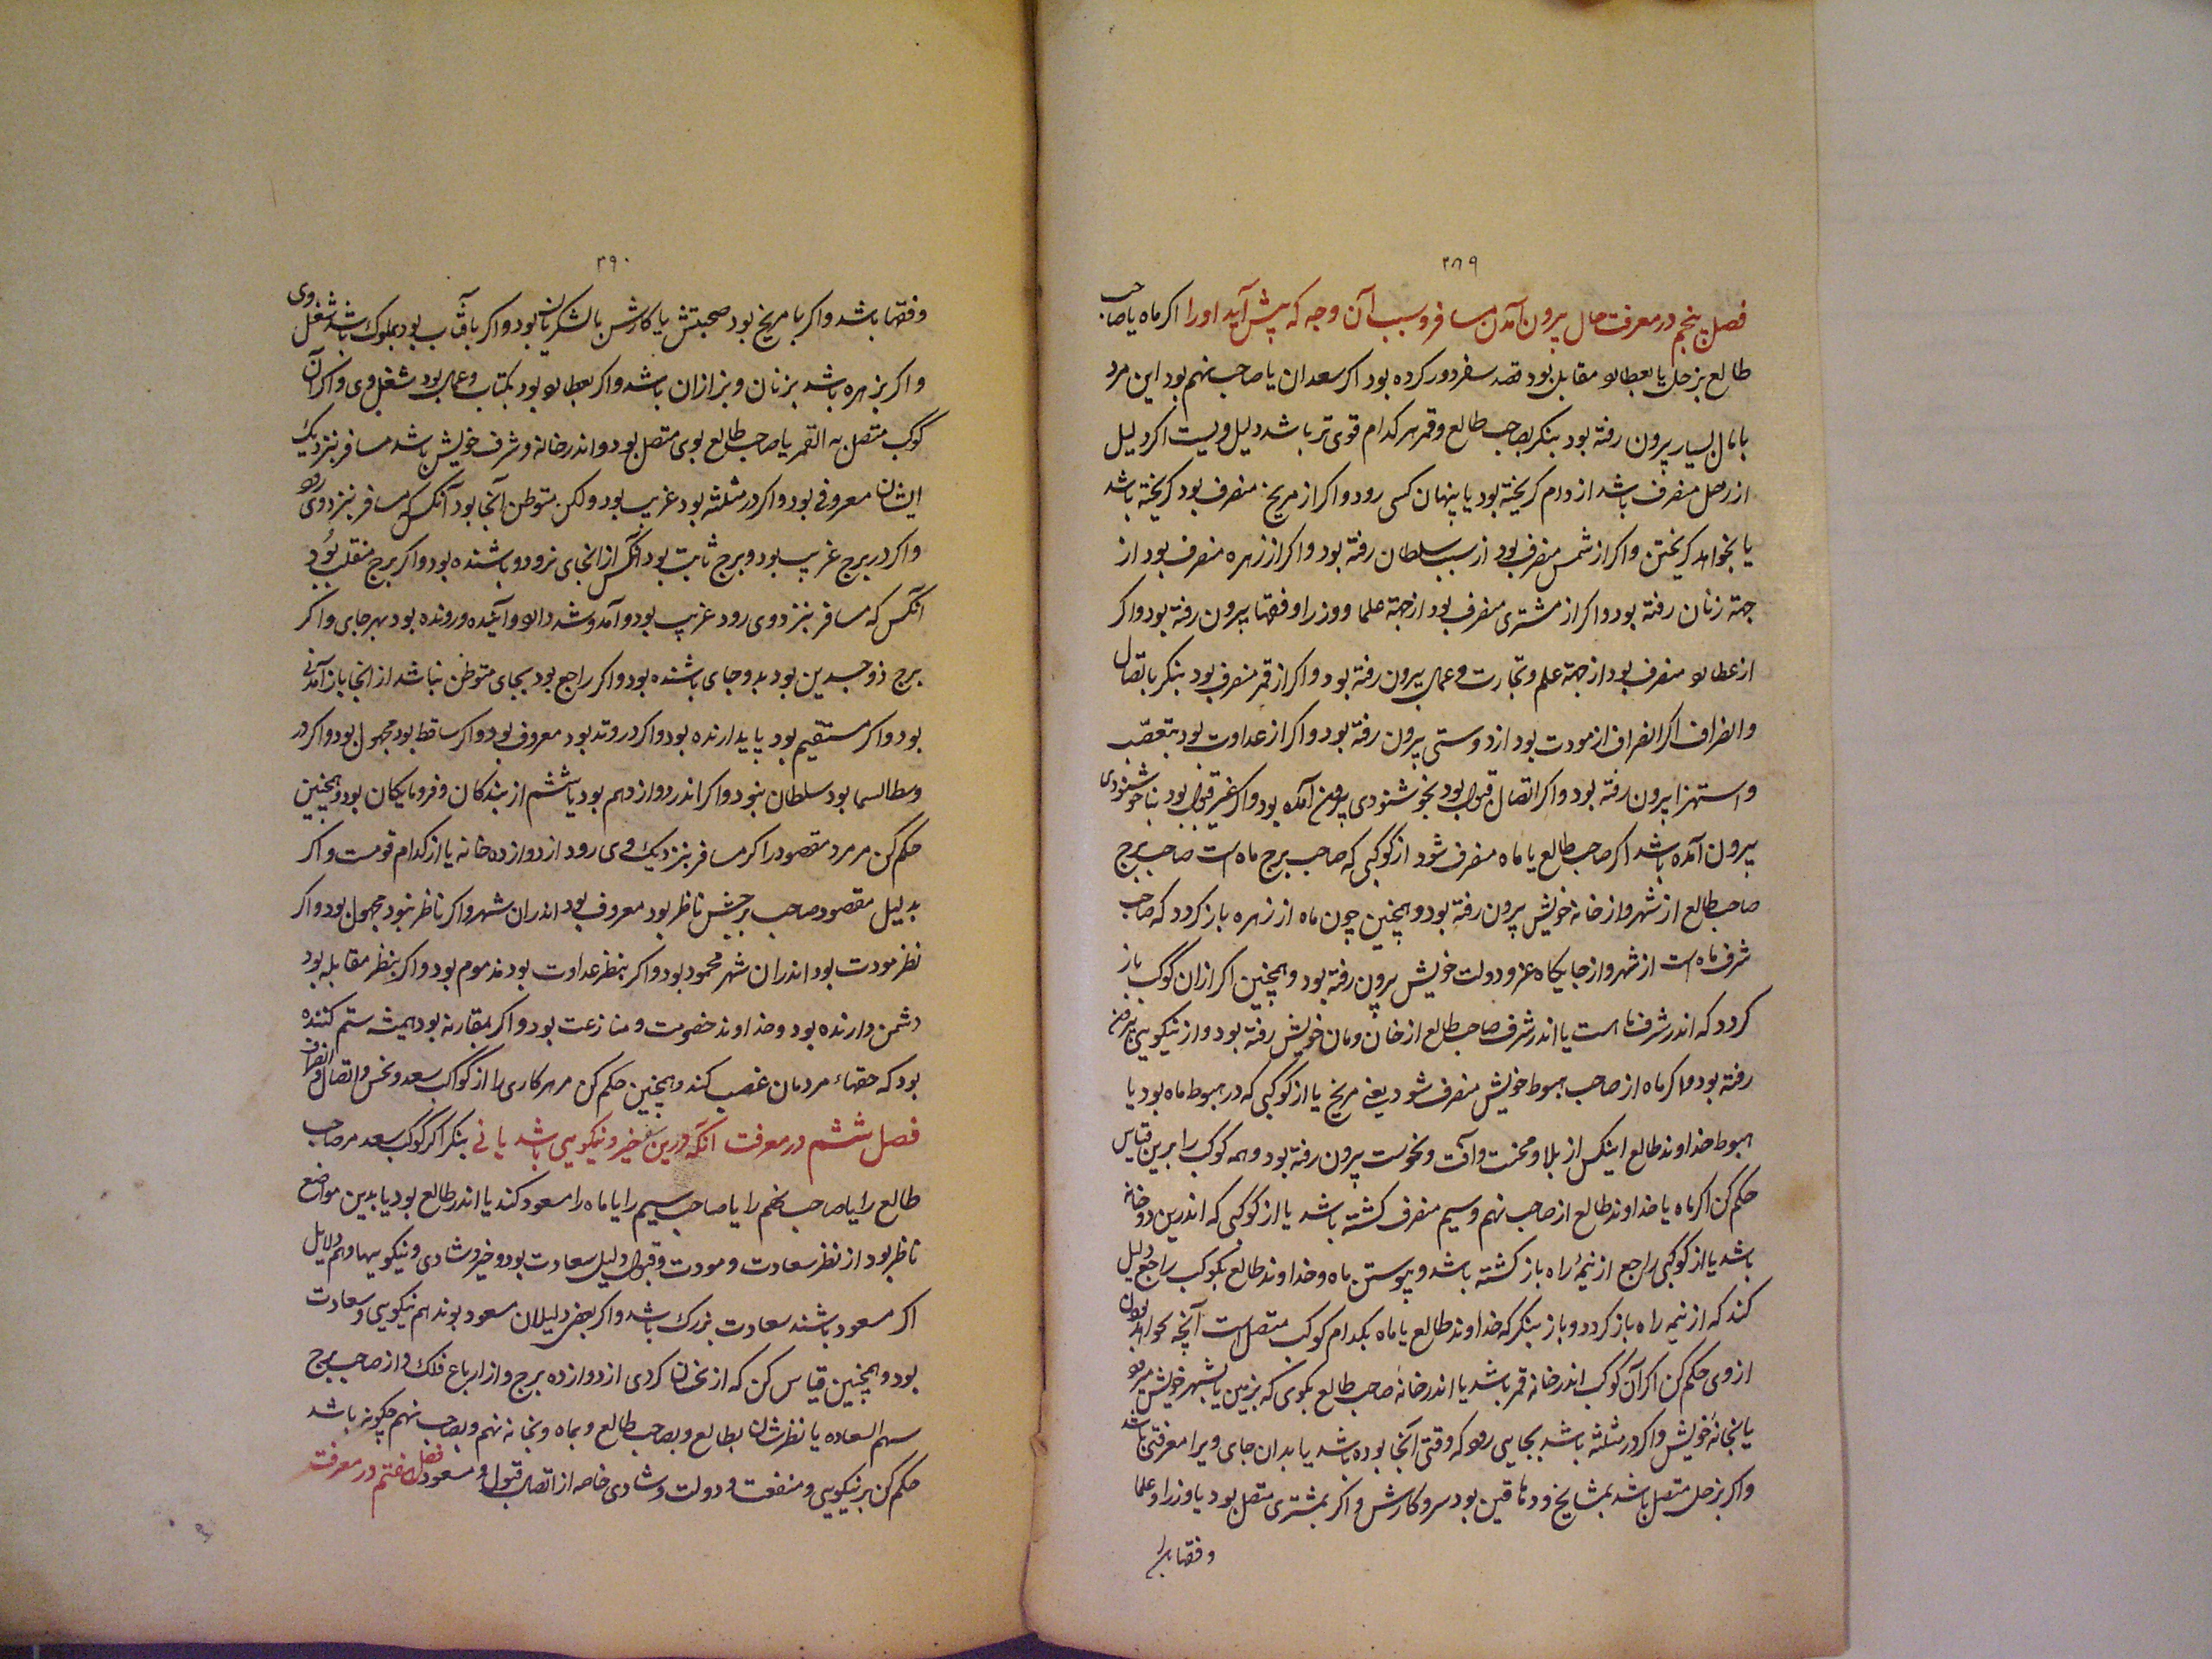 ۳۸۹
فصل پنجم در معرفت حال پیرون آمدن مسافر و سبب آن وجه که پیش آید او را اکر ماه یا صاحب
طالع بزحل یا بعطارد مقابل بود قصد سفر دور کرده بود اکر سعدان یا صاحب نهم بود این مرد
با مال بسیار پرون رفته بود بنکر بصاحب طالع و قمر هر کدام قوی تر باشد دلیل ویست اکر دلیل
از زحل منصرف باشد از وام کریخته بود یا پنهان کسی رود و اکر از مریخ منصرف بود کریخته باشد
یا بخواهد کریختن و اکر از شمس منصرف بود از سبب سلطان رفته بود و اکر از زهره منصرف بود از
جهة زنان رفته بود و اکر از مشتری منصرف بود از جهة علما و وزرا و فقها پیرون رفته بود و اکر
از عطارد منصرف بود از جهة علم و تجارت و عمال بیرون رفته بود و اکر از قمر منصرف بود بنکر باتصال
و انصراف اکر انصراف از مودت بود از دوستی پیرون رفته بود و اکر از عداوت بود بتعصّب
و استهزا پرون رفته بود و اکر اتصال قبول بود بخوشنودی پیرون آمده بود و اکر غیر قبول بود بناخوشنودی
بیرون آمده باشد اکر صاحب طالع یا ماه منصرف شود از کوکبی که صاحب برج ماه است صاحب برج
صاحب طالع از شهر و از خانه خویش پرون رفته بود و همچنین چون ماه از زهره باز کردد که صاحب
شرف ماه است از شهر و از جایکاه عز و دولت خویش پیرون رفته بود و همچنین اکر ازان کوکب باز
کردد که اندر شرف ماه است یا اندر شرف صاحب طالع از خان و مان خویش رفته بود و از نیکویی
رفته بود و اکر ماه از صاحب هبوط خویش منصرف شود یعنی مریخ یا از کوکبی که در هبوط ماه بود یا
هبوط خداوند طالع اینکس از بلا و محنت و آفت و نحوست پیرون رفته بود و همه کوکب را برین قیاس
حکم کن اکر ماه یا خداوند طالع از صاحب نهم و سیم منصرف کشته باشد یا از کوکبی که اندرین دو خانه
باشد یا از کوکبی راجع از نیمهٔ راه باز کشته باشد و پیوستن ماه و خداوند طالع بکوکب راجع دلیل
کند که از نیمه راه باز کردد و باز بنکر که خداوند طالع یا ماه بکدام کوکب متصل است آنچه خواهد بودن
از وی حکم کن اکر آن کوکب اندر خانه قمر باشد یا اندر خانهٔ صاحب طالع بکوی که بزمین یا بشهر خویش میرود
یا بخانهٔ خویش و اکر در مثلثه باشد بجایی رود که وقتی آنجا بوده باشد یا بدان جای ویرا معرفتی باشد
و اکر بزحل متصل باشد بمشایخ و دهاقین بود سر و کارش و اکر بمشتری متصل بود یا وزرا و علما
و فقها
۳۹۰
و فقها باشد و اکر با مریخ بود صحبتش یا کارش بالشکریان بود و اکر بآفتاب بود بملوک باشد شغل وی
و اکر بزهره باشد بزنان و بزازان باشد و اکر بعطارد بود بکتاب و عمال بود شغل وی و اکر آن
کوکب متصل به القمر یا صاحب طالع بوی متصل بود و اندر خانه و شرف خویش باشد مسافر بنزدیک
ایشان معروفی بود و اکر در مثلثه بود غریب بود ولکن متوطن آنجا بود آنکس که مسافر بنزد وی رود
و اکر در برج غریب بود و برج ثابت بود آنکس از آنجای نرود و باشنده بود و اکر برج منقلب بُود
آنکس که مسافر بنزد وی رود غریب بود و آمد و شد دارد و آینده و رونده بود بهر جای و اکر
برج ذوجسدین بود بدو جای باشنده بود و اکر راجع بود بجای متوطن نباشد از آنجا باز آمدنی
بود و اکر مستقیم بود پایدارنده بود و اکر در وتد بود معروف بود و اکر ساقط بود مجهول بود و اکر در
وسط السما بود سلطان بود و اکر اندر دوازدهم بود یا ششم از بندکان و فرومایکان بود و همچنین
حکم کن مر مرد مقصود را کر مسافر بنزدیک وی رود از دوازده خانه یا از کدام قومست و اکر
بدلیل مقصود صاحب برجش ناظر بود معروف بود اندران شهر و اکر ناظر نبود مجهول بود و اکر
نظر مودت بود اندران شهر محمود بود و اکر بنظر عداوت بود مذموم بود و اکر بنظر مقابله بود
دشمن دارنده بود و خداوند خصومت و منازعت بود و اکر بمقارنه بود همیشه ستم کننده
بود که حقهاء مردمان غصب کند و همچنین حکم کن مر هر کاری را از کواکب سعد و نحس و اتصال و انصراف
فصل ششم در معرفت آنکه درین سفر خیر و نیکویی باشد یا نی بنکر اکر کوکب سعد مر صاحب
طالع را یا صاحب نهم را یا صاحب سیم را یا ماه را مسعود کند یا اندر طالع بود یا بدین مواضع
ناظر بود از نظر سعادت و مودت و قبول دلیل سعادت بود و خیر و شادی و نیکوییها و هم دلایل
اکر مسعود باشند سعادت بزرک باشد و اکر بعضی دلیلان مسعود بوند هم نیکویی و سعادت
بود و همچنین قیاس کن که از نحسان کردی از دوازده برج و از ارباع فلک و از صاحب برج
سهم السعاده یا نظرشان بطالع و بصاحب طالع و بماه و بخانه نهم و بصاحب نهم چکونه باشد
حکم کن بر نیکویی و منفعت و دولت و شادی خاصه از اتصال قبول و مسعود فصل هفتم در معرفت